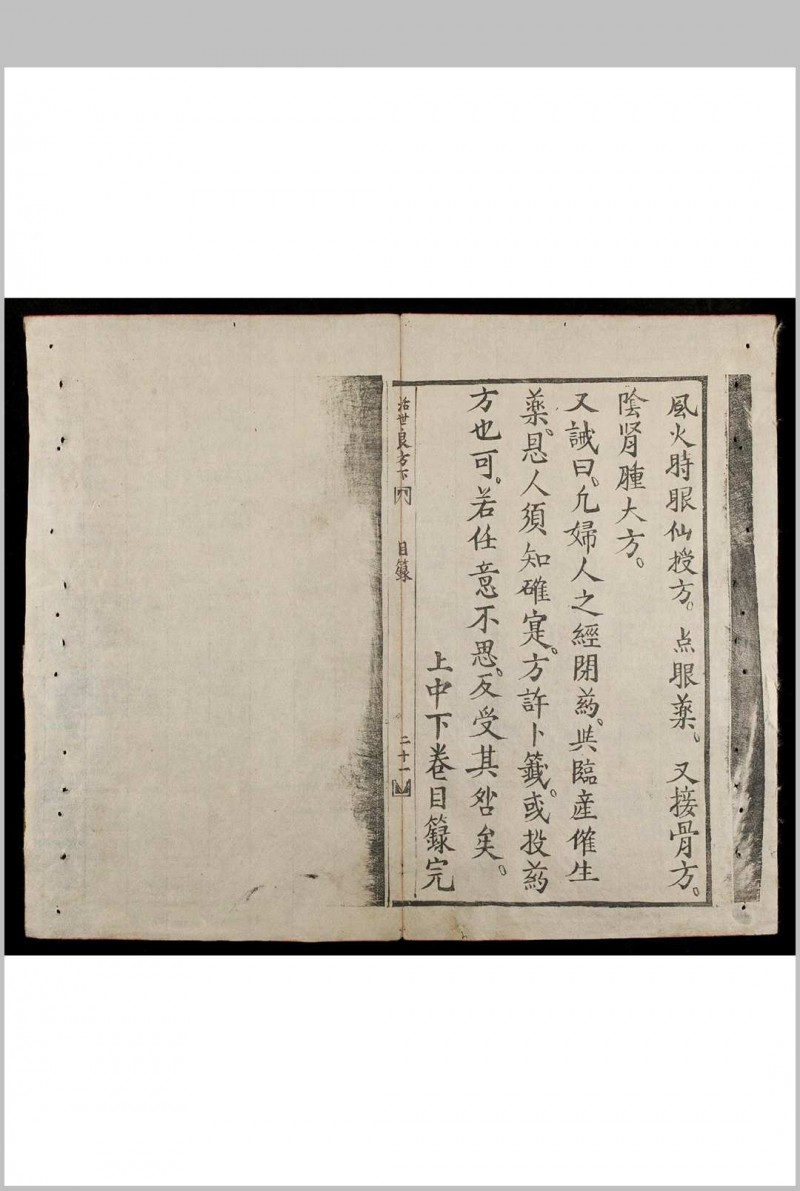 風火時眼仙授方。点眼薬。又接骨方。
陰肾腫大方。
又誡曰。凢婦人之經閉葯。与臨産催生
薬。恳人須知確寔。方許卜籤。或投葯
方也可。若任意不思。反受其咎矣。
上中下卷目籙完
活世良方下 目籙 二十一